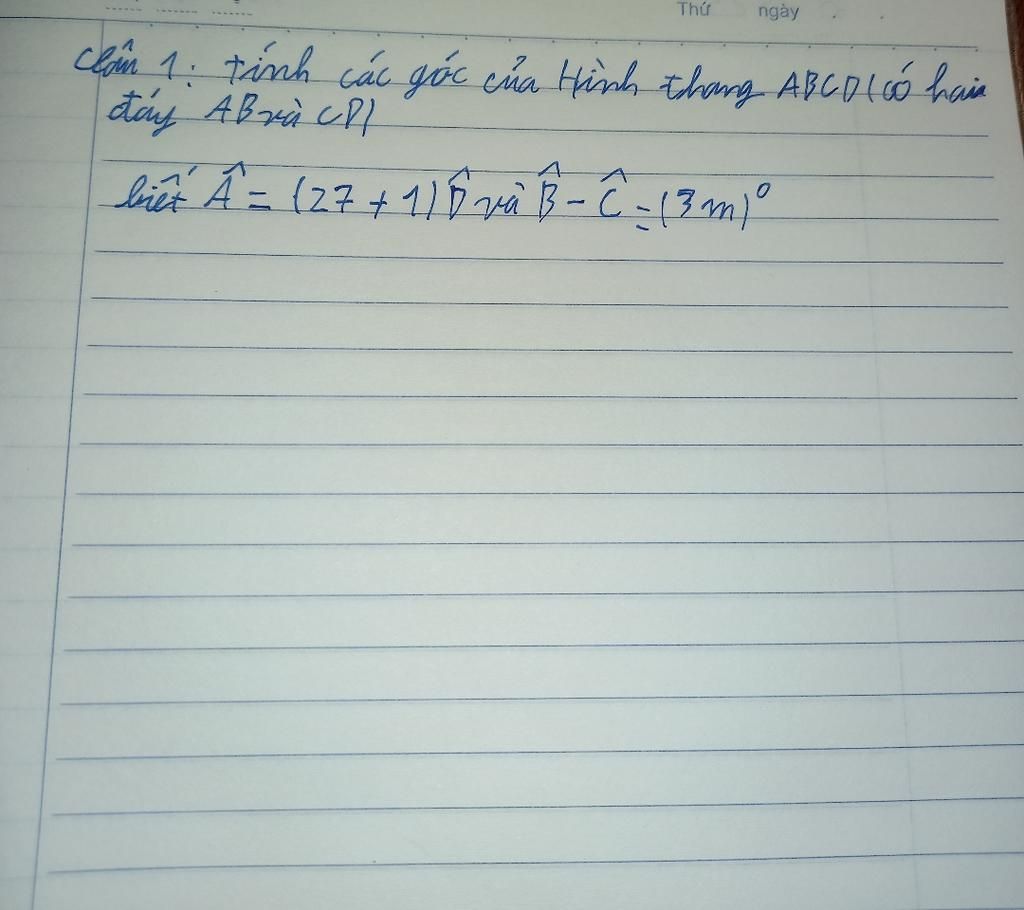 Thứ ngày
Câu 1: Tính các góc của Hình thang ABCD (có hai
đáy AB và CD)
biết Â = (27 + 1) D̂ và B̂ - Ĉ = (3m)⁰